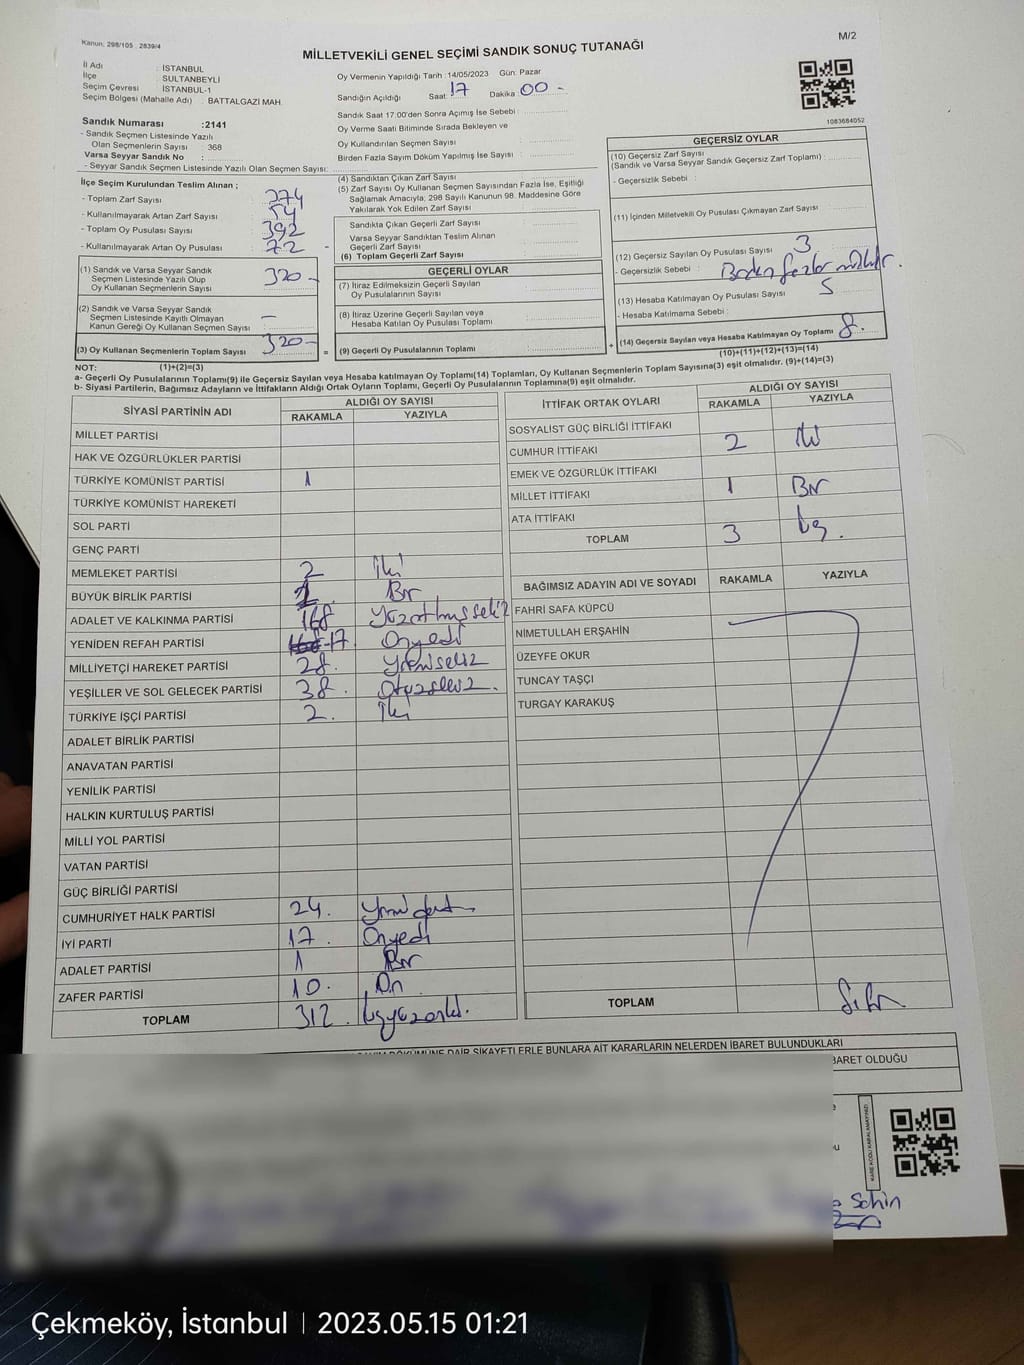 Kanun: 298/105 , 2839/4
M/2
MİLLETVEKİLİ GENEL SEÇİMİ SANDIK SONUÇ TUTANAĞI
İl Adı : İSTANBUL
İlçe : SULTANBEYLİ
Seçim Çevresi : İSTANBUL-1
Seçim Bölgesi (Mahalle Adı) : BATTALGAZİ MAH.
Oy Vermenin Yapıldığı Tarih : 14/05/2023 Gün: Pazar
Sandığın Açıldığı Saat: 17 Dakika: 00 -
Sandık Saat 17.00'den Sonra Açımış İse Sebebi :
Oy Verme Saati Bitiminde Sırada Bekleyen ve
Oy Kullandırılan Seçmen Sayısı :
Birden Fazla Sayım Döküm Yapılmış İse Sayısı :
1083684052
Sandık Numarası : 2141
- Sandık Seçmen Listesinde Yazılı
Olan Seçmenlerin Sayısı : 368
Varsa Seyyar Sandık No :
- Seyyar Sandık Seçmen Listesinde Yazılı Olan Seçmen Sayısı:
İlçe Seçim Kurulundan Teslim Alınan ;
- Toplam Zarf Sayısı : 374
- Kullanılmayarak Artan Zarf Sayısı : 54
- Toplam Oy Pusulası Sayısı : 392
- Kullanılmayarak Artan Oy Pusulası : 72
(1) Sandık ve Varsa Seyyar Sandık
Seçmen Listesinde Yazılı Olup
Oy Kullanan Seçmenlerin Sayısı : 320 -
(2) Sandık ve Varsa Seyyar Sandık
Seçmen Listesinde Kayıtlı Olmayan
Kanun Gereği Oy Kullanan Seçmen Sayısı : -
(3) Oy Kullanan Seçmenlerin Toplam Sayısı : 320 -
(1)+(2)=(3)
(4) Sandıktan Çıkan Zarf Sayısı :
(5) Zarf Sayısı Oy Kullanan Seçmen Sayısından Fazla İse, Eşitliği
Sağlamak Amacıyla; 298 Sayılı Kanunun 98. Maddesine Göre
Yakılarak Yok Edilen Zarf Sayısı :
Sandıkta Çıkan Geçerli Zarf Sayısı :
Varsa Seyyar Sandıktan Teslim Alınan
Geçerli Zarf Sayısı :
(6) Toplam Geçerli Zarf Sayısı :
GEÇERLİ OYLAR
(7) İtiraz Edilmeksizin Geçerli Sayılan
Oy Pusulalarının Sayısı :
(8) İtiraz Üzerine Geçerli Sayılan veya
Hesaba Katılan Oy Pusulası Toplamı :
= (9) Geçerli Oy Pusulalarının Toplamı :
GEÇERSİZ OYLAR
(10) Geçersiz Zarf Sayısı
(Sandık ve Varsa Seyyar Sandık Geçersiz Zarf Toplamı) :
- Geçersizlik Sebebi :
(11) İçinden Milletvekili Oy Pusulası Çıkmayan Zarf Sayısı :
(12) Geçersiz Sayılan Oy Pusulası Sayısı : 3
- Geçersizlik Sebebi : Birden fazla mühür.
(13) Hesaba Katılmayan Oy Pusulası Sayısı : 5
- Hesaba Katılmama Sebebi :
+ (14) Geçersiz Sayılan veya Hesaba Katılmayan Oy Toplamı : 8.
(10)+(11)+(12)+(13)=(14)
NOT:
a- Geçerli Oy Pusulalarının Toplamı(9) ile Geçersiz Sayılan veya Hesaba katılmayan Oy Toplamı(14) Toplamları, Oy Kullanan Seçmenlerin Toplam Sayısına(3) eşit olmalıdır. (9)+(14)=(3)
b- Siyasi Partilerin, Bağımsız Adayların ve İttifakların Aldığı Ortak Oyların Toplamı, Geçerli Oy Pusulalarının Toplamına(9) eşit olmalıdır.
SİYASİ PARTİNİN ADI ALDIĞI OY SAYISI
RAKAMLA YAZIYLA
MİLLET PARTİSİ
HAK VE ÖZGÜRLÜKLER PARTİSİ
TÜRKİYE KOMÜNİST PARTİSİ 1
TÜRKİYE KOMÜNİST HAREKETİ
SOL PARTİ
GENÇ PARTİ
MEMLEKET PARTİSİ 2 İki
BÜYÜK BİRLİK PARTİSİ 1 Bir
ADALET VE KALKINMA PARTİSİ 168 Yüzaltmışsekiz
YENİDEN REFAH PARTİSİ 17 Onyedi
MİLLİYETÇİ HAREKET PARTİSİ 28. Yirmisekiz
YEŞİLLER VE SOL GELECEK PARTİSİ 38. Otuzsekiz.
TÜRKİYE İŞÇİ PARTİSİ 2. İki
ADALET BİRLİK PARTİSİ
ANAVATAN PARTİSİ
YENİLİK PARTİSİ
HALKIN KURTULUŞ PARTİSİ
MİLLİ YOL PARTİSİ
VATAN PARTİSİ
GÜÇ BİRLİĞİ PARTİSİ
CUMHURİYET HALK PARTİSİ 24. Yirmi dört
İYİ PARTİ 17. Onyedi
ADALET PARTİSİ 1 Bir
ZAFER PARTİSİ 10. On
TOPLAM 312. Üçyüzoniki.
İTTİFAK ORTAK OYLARI ALDIĞI OY SAYISI
RAKAMLA YAZIYLA
SOSYALİST GÜÇ BİRLİĞİ İTTİFAKI
CUMHUR İTTİFAKI 2 İki
EMEK VE ÖZGÜRLÜK İTTİFAKI
MİLLET İTTİFAKI 1 Bir
ATA İTTİFAKI
TOPLAM 3 Üç.
BAĞIMSIZ ADAYIN ADI VE SOYADI RAKAMLA YAZIYLA
FAHRİ SAFA KÜPCÜ
NİMETULLAH ERŞAHİN
ÜZEYFE OKUR
TUNCAY TAŞÇI
TURGAY KARAKUŞ
TOPLAM Sıfır
DÖKÜMÜNE DAİR ŞİKAYETLERLE BUNLARA AİT KARARLARIN NELERDEN İBARET BULUNDUKLARI
BARET OLDUĞU
KARE KODU KARALAMAYINIZ!
Şahin
Çekmeköy, İstanbul | 2023.05.15 01:21